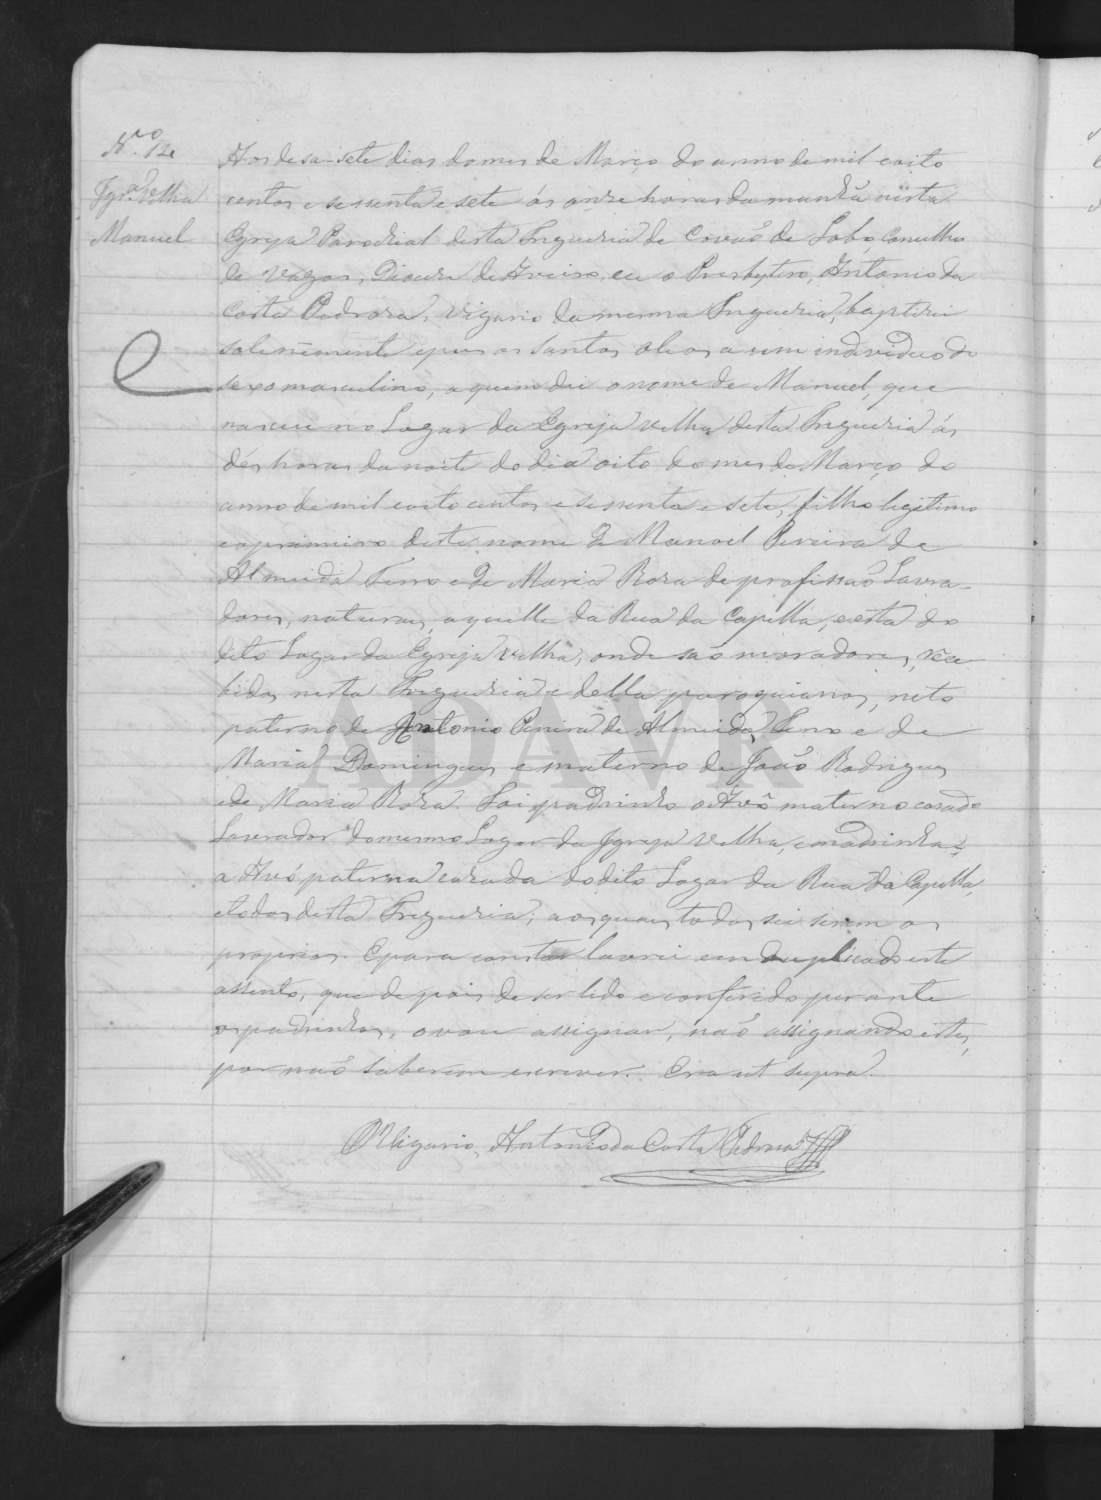 N.º 12
Igrª Velha
Manuel
Aos desa-sete dias do mes de Março do anno de mil oito
centos e sessenta e sete ás onze horas da manhã n'esta
Egreja Parochial desta Freguezia de Covaõ do Lobo, Concelho
de Vagos, Diocese de Aveiro, eu o Presbytero, Antonio da
Costa Pedroza, Vigario da mesma Freguezia, baptizei
solemnemente e pus os Santos oleos a um individuo do
sexo masculino, a quem dei o nome de Manuel, que
nasceu no Lugar da Egreja velha desta Freguezia ás
dés horas da noite do dia oito do mes de Março do
anno de mil oito centos e sessenta e sete, filho legitimo
e o primeiro deste nome de Manoel Pereira de
Almeida Ferro e de Maria Roza de profissaõ Lavra-
dores, naturaes, aquelle da Rua da Capella, e esta do
dito Lugar da Egreja velha, onde saõ moradores, rece
bidos nesta Freguezia e della paroquianos, neto
paterno de Antonio Pereira de Almeida Ferro e de
Maria Domingues e materno de Joaõ Rodrigues
e de Maria Roza. Foi padrinho o Avô materno casado
Lavrador do mesmo Lugar da Igreja Velha, e madrinha
a Avó paterna casada do dito Lugar da Rua da Capella,
e todos desta Freguezia, aos quaes todos sei serem os
proprios. E para constar lavrei em duplicado este
assento, que depois de ser lido e conferido perante
os padrinhos, o vou assignar, naõ assignando estes,
por naõ saberem escrever. Era ut supra.
O Vigario, Antonio da Costa Pedroza
ADAVR